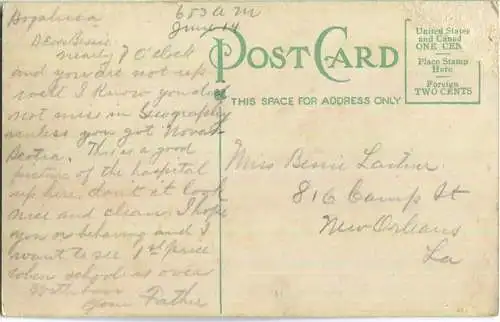 Bogalusa
653 a m
June 14
Dear Bessie
nearly 7 O'clock
and you are not up
well I know you did
not miss in Geography
unless you got Nova
Scotia. This is a good
picture of the hospital
up here. dont it look
nice and clean. I hope
you or behaving and I
want to see 1st price
when school is over
your Father
POST CARD
THIS SPACE FOR ADDRESS ONLY
United States
and Canad
ONE CEN
Place Stamp
Here
Foreign
TWO CENTS
Miss Bessie
816 Camp St
New Orleans
La